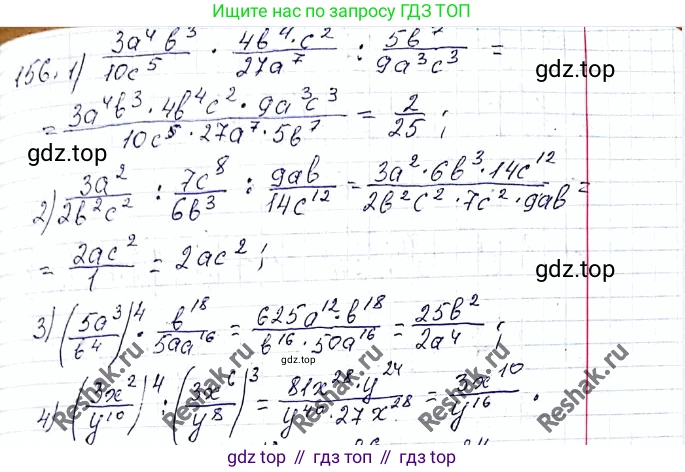 Ищите нас по запросу ГДЗ ТОП
156. 1) 3a⁴b³/10c⁵ · 4b⁴·c²/27a⁷ : 5b⁷/9a³c³ =
gdz.top
= 3a⁴b³·4b⁴c²·9a³c³/10c⁵·27a⁷·5b⁷ = 2/25;
gdz.top
2) 3a²/2b²c² : 7c⁸/6b³ : 9ab/14c¹² = 3a²·6b³·14c¹²/2b²c²·7c²·9ab² =
= 2ac²/1 = 2ac²;
gdz.top
3) (5a³/b⁴)⁴ · b¹⁸/5aa¹⁶ = 625a¹²·b¹⁸/b¹⁶·50a¹⁶ = 25b²/2a⁴;
gdz.top
4) (3x²/y¹⁰)⁴ : (3x⁶/y⁸)³ = 81x²⁸·y²⁴/y⁴⁰·27x²⁸ = 3x¹⁰/y¹⁶.
gdz.top
Reshak.ru
Reshak.ru
Reshak.ru
Reshak.ru
gdz.top // гдз топ // gdz.top